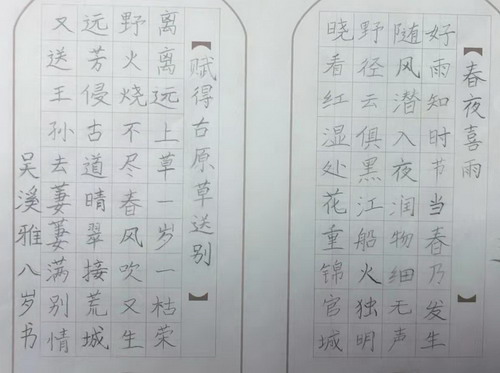 【春夜喜雨】
好雨知时节当春乃发生
随风潜入夜润物细无声
野径云俱黑江船火独明
晓看红湿处花重锦官城
【赋得古原草送别】
离离远上草一岁一枯荣
野火烧不尽春风吹又生
远芳侵古道晴翠接荒城
又送王孙去萋萋满别情
吴溪雅八岁书